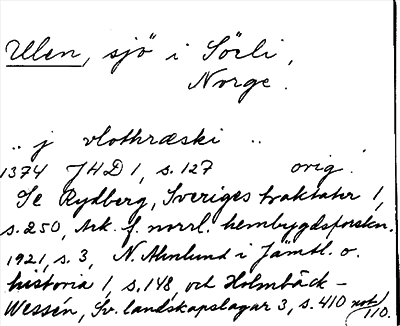 Ulen, sjö i Sörli,
Norge.
„ j vlothræski „
1374 JHD 1, s. 127 orig.
Se Rydberg, Sveriges traktater 1,
s. 250, Ark. f. norrl. hembygdsforskn.
1921, s. 3, N. Ahnlund i Jämtl. o.
historia 1, s. 148, och Holmbäck -
Wessén, Sv. landskapslagar 3, s. 410 not 110.